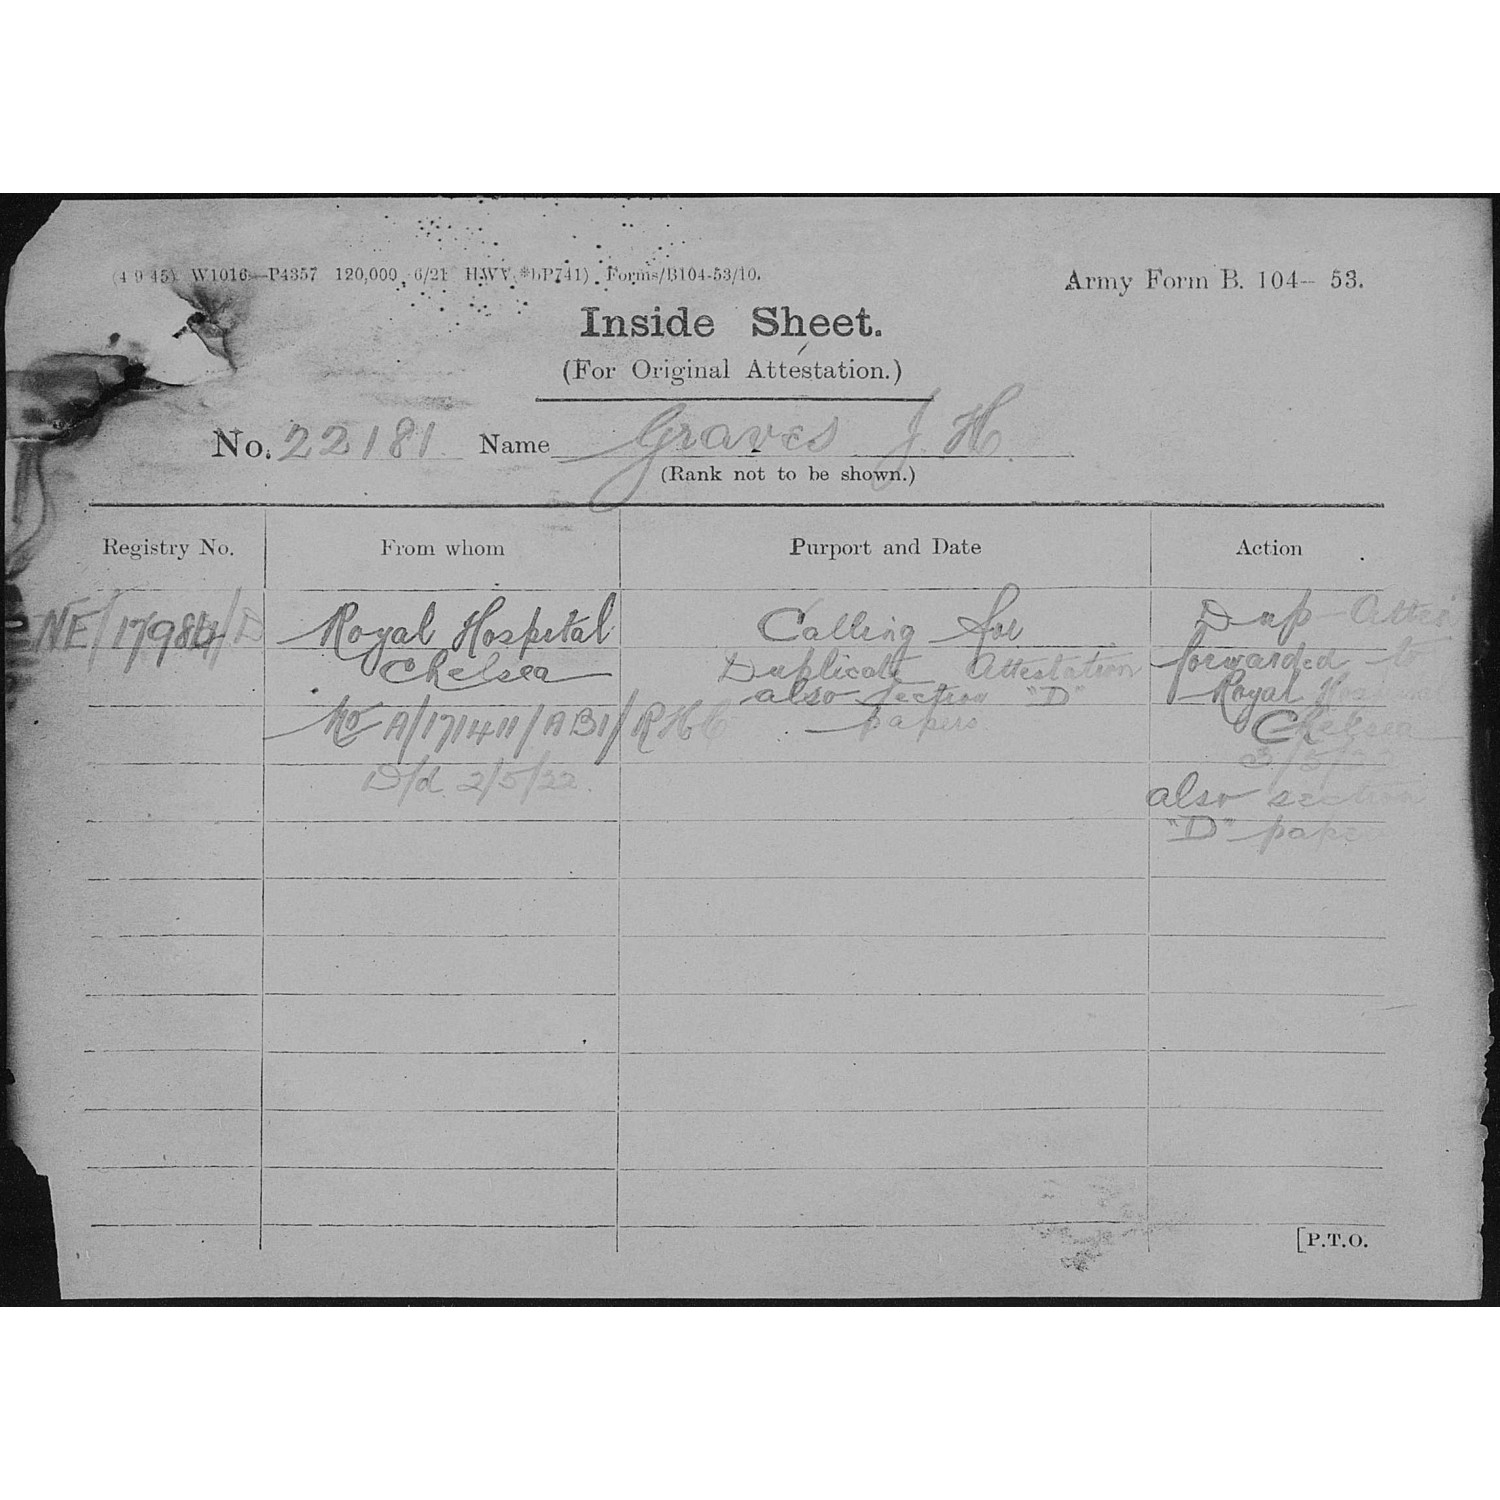 (4 9 45) W1016—P4357 120,000 6/21 HWV Forms/B104-53/10.
Army Form B. 104— 53.
Inside Sheet.
(For Original Attestation.)
No. 22181 Name Graves J. H.
(Rank not to be shown.)
Registry No. From whom Purport and Date Action
NE/17984/D Royal Hospital Calling for Dup Attes
Chelsea Duplicate Attestation forwarded to
also section "D" Royal Hospital
No A/171411/AB1/RHC papers Chelsea
D/d 2/5/22. 3/5/22
also section
"D" papers
[P.T.O.